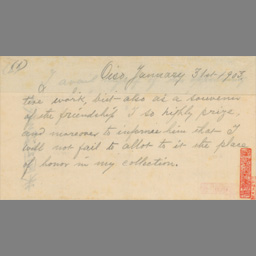 (1) Oiso, January 31st 1903.
tive work, but also as a souvenir
of the friendship I so highly prize,
and moreover to inform him that I
will not fail to allot to it the place
of honor in my collection.